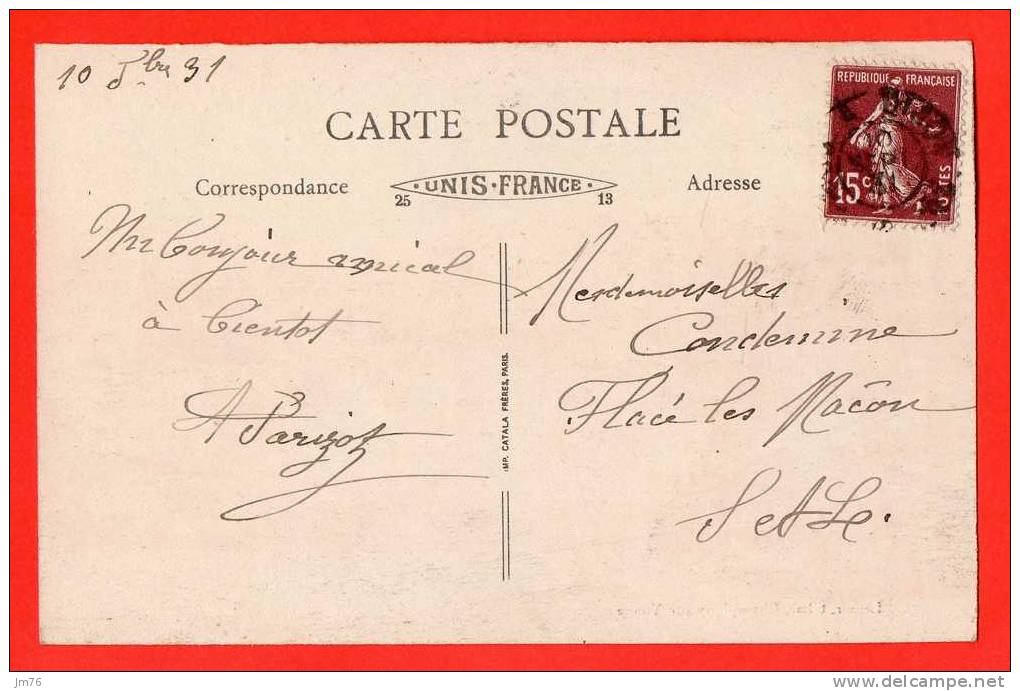 10 Sbre 31
CARTE POSTALE
Correspondance
UNIS-FRANCE
25
13
Adresse
REPUBLIQUE FRANÇAISE
15c
POSTES
Un bonjour amical
à bientot
A Parizot
IMP. CATALA FRÈRES, PARIS.
Mesdemoiselles
Condemine
Flacé les Mâcon
S et L.
jm76
delcampe.net